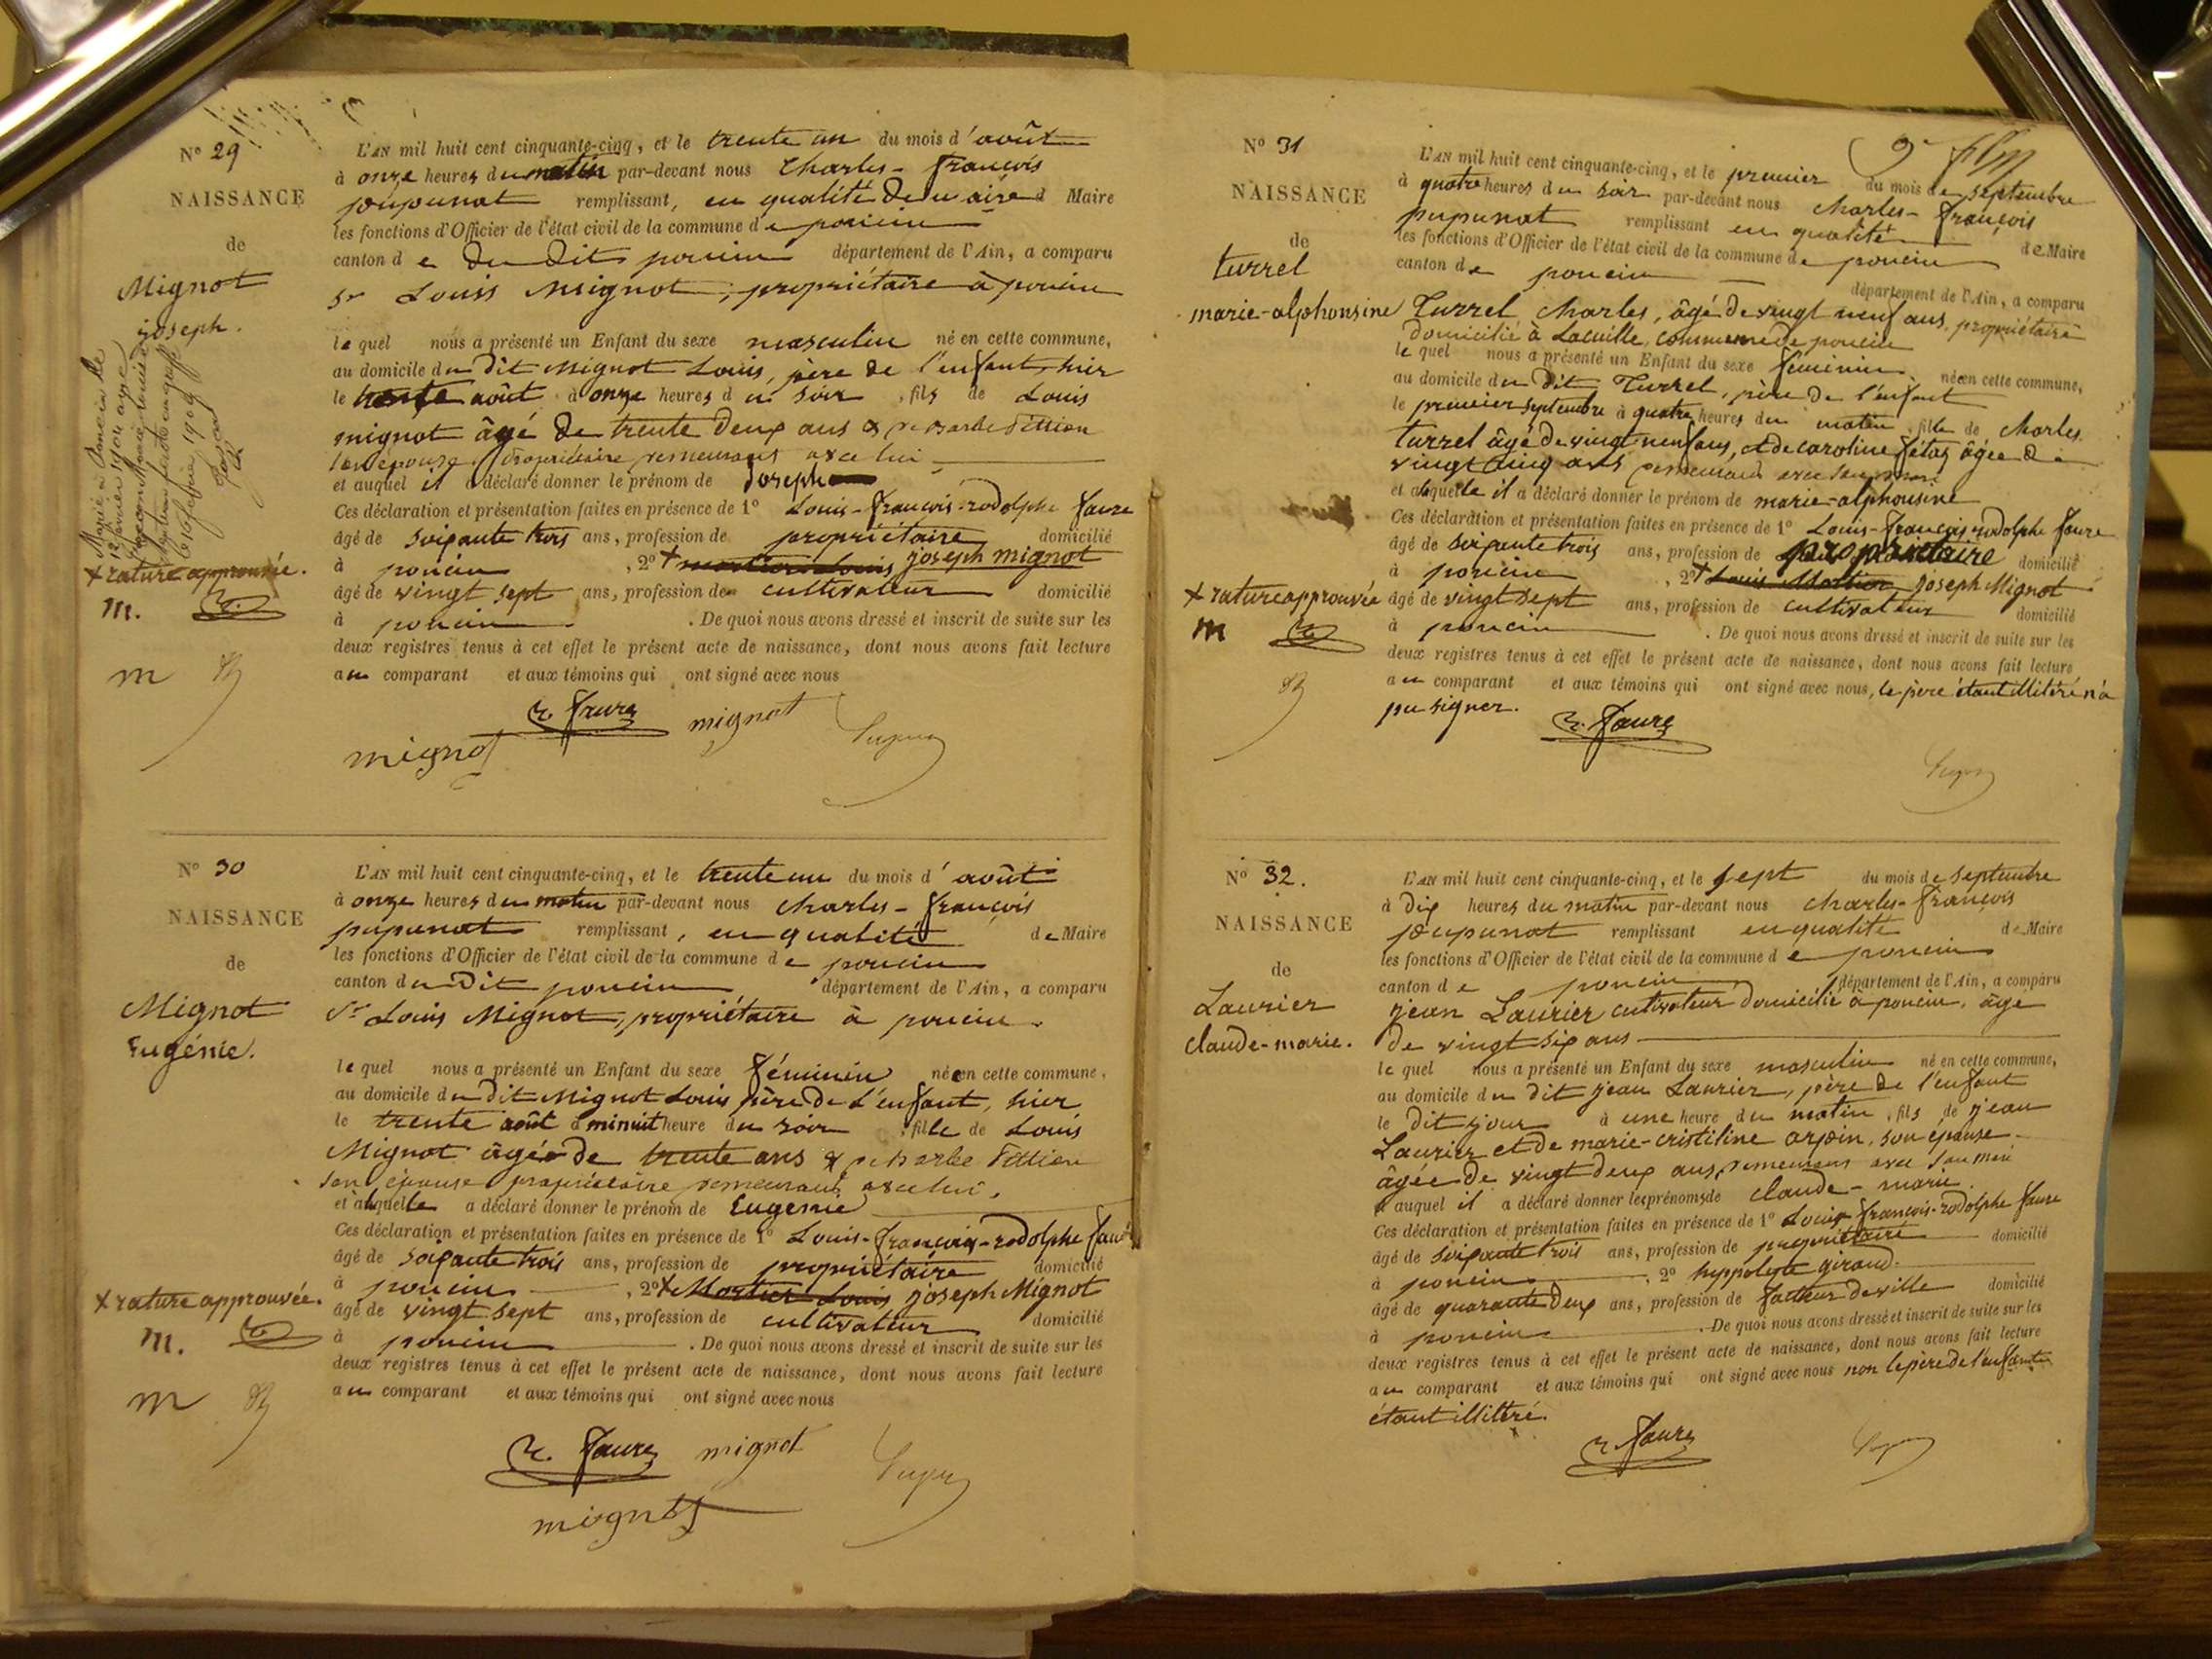 N° 29
NAISSANCE
de
Mignot
joseph.
Marié à Poncin le
12 janvier 1904 avec
+ rature approuvée.
m.
m
L'AN mil huit cent cinquante-cinq, et le trente un du mois d'août
à onze heures du matin par-devant nous Charles-françois
pupunat remplissant, en qualité de maire d Maire
les fonctions d'Officier de l'état civil de la commune de poncin
canton d e du dit poncin département de l'Ain, a comparu
Sr Louis Mignot, propriétaire à poncin
le quel nous a présenté un Enfant du sexe masculin né en cette commune,
au domicile du dit Mignot Louis, père de l'enfant, hier
le trente août à onze heures du soir, fils de Louis
mignot âgé de trente deux ans &
son épouse, propriétaire demeurant avec lui
et auquel il a déclaré donner le prénom de Joseph
Ces déclaration et présentation faites en présence de 1° Louis-françois-rodolphe faure
âgé de soixante trois ans, profession de propriétaire domicilié
à poncin, 2° + mortier Louis joseph mignot
âgé de vingt sept ans, profession de cultivateur domicilié
à poncin. De quoi nous avons dressé et inscrit de suite sur les
deux registres tenus à cet effet le présent acte de naissance, dont nous avons fait lecture
au comparant et aux témoins qui ont signé avec nous
r. faure mignot
mignot
N° 30
NAISSANCE
de
Mignot
Eugénie.
+ rature approuvée.
m.
m
L'AN mil huit cent cinquante-cinq, et le trente un du mois d'août
à onze heures du matin par-devant nous charles-françois
pupunat remplissant, en qualité de Maire
les fonctions d'Officier de l'état civil de la commune de poncin
canton du Dit poncin département de l'Ain, a comparu
Sr Louis Mignot, propriétaire à poncin.
le quel nous a présenté un Enfant du sexe féminin née en cette commune,
au domicile du dit Mignot Louis père de L'enfant, hier
le trente août à minuit heure du soir, fille de Louis
Mignot âgé de trente ans &
son épouse propriétaire demeurant avec lui,
et à laquelle a déclaré donner le prénom de Eugénie
Ces déclaration et présentation faites en présence de 1° Louis-françois-rodolphe faure
âgé de soixante trois ans, profession de propriétaire domicilié
à poncin, 2° + Mortier Louis joseph Mignot
âgé de vingt sept ans, profession de cultivateur domicilié
à poncin. De quoi nous avons dressé et inscrit de suite sur les
deux registres tenus à cet effet le présent acte de naissance, dont nous avons fait lecture
au comparant et aux témoins qui ont signé avec nous
r. faure mignot
mignot
N° 31
NAISSANCE
de
turrel
marie-alphonsine
+ rature approuvée
m
L'AN mil huit cent cinquante-cinq, et le premier du mois de septembre
à quatre heures du soir par-devant nous charles-françois
pupunat remplissant en qualité de Maire
les fonctions d'Officier de l'état civil de la commune de poncin
canton de poncin département de l'Ain, a comparu
Turrel Charles, âgé de vingt neuf ans, propriétaire
domicilié à Lacuille, commune de poncin
le quel nous a présenté un Enfant du sexe féminin née en cette commune,
au domicile du dit Turrel, père de l'enfant
le premier septembre à quatre heures du matin, fille de Charles
turrel âgé de vingt neuf ans, et de caroline fétaz âgée de
vingt cinq ans demeurant avec son mari
et à laquelle il a déclaré donner le prénom de marie-alphonsine
Ces déclaration et présentation faites en présence de 1° Louis-françois rodolphe faure
âgé de soixante trois ans, profession de propriétaire domicilié
à poncin, 2° + Louis Mortier joseph Mignot
âgé de vingt sept ans, profession de cultivateur domicilié
à poncin. De quoi nous avons dressé et inscrit de suite sur les
deux registres tenus à cet effet le présent acte de naissance, dont nous avons fait lecture
au comparant et aux témoins qui ont signé avec nous, le père étant illitéré n'a
pu signer.
r. faure
N° 32.
NAISSANCE
de
Laurier
claude-marie.
L'AN mil huit cent cinquante-cinq, et le sept du mois de septembre
à dix heures du matin par-devant nous charles-françois
pupunat remplissant en qualité de Maire
les fonctions d'Officier de l'état civil de la commune d e poncin
canton d e poncin département de l'Ain, a comparu
jean Laurier cultivateur domicilié à poncin, âgé
de vingt six ans
le quel nous a présenté un Enfant du sexe masculin né en cette commune,
au domicile du dit jean Laurier, père de l'enfant
le dit jour à une heure du matin, fils de jean
Laurier et de marie-cristiline arpin, son épouse
âgée de vingt deux ans, demeurant avec son mari
& auquel il a déclaré donner les prénoms de claude-marie.
Ces déclaration et présentation faites en présence de 1° Louis-françois-rodolphe faure
âgé de soixante trois ans, profession de propriétaire domicilié
à poncin, 2° hyppolyte giraud.
âgé de quarante deux ans, profession de facteur de ville domicilié
à poncin. De quoi nous avons dressé et inscrit de suite sur les
deux registres tenus à cet effet le présent acte de naissance, dont nous avons fait lecture
au comparant et aux témoins qui ont signé avec nous non le père de l'enfant
étant illitéré.
r. faure